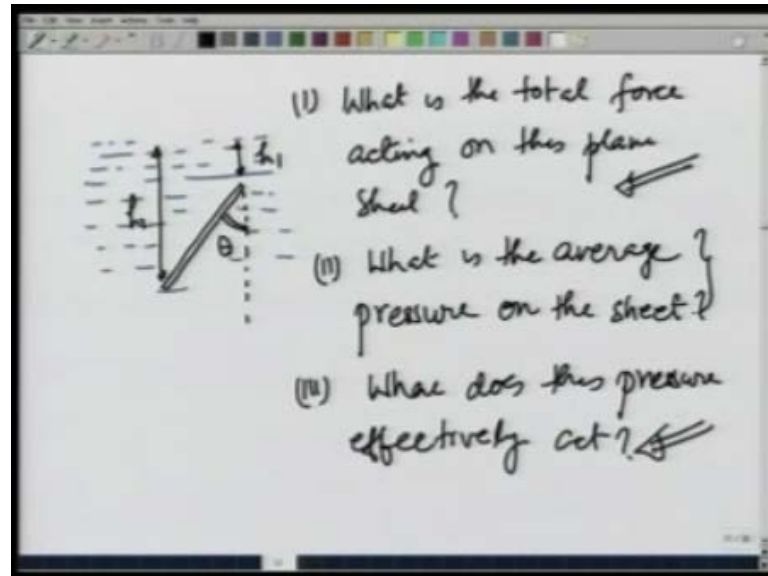 (I) What is the total force
acting on this plane
sheet ?
(II) What is the average
pressure on the sheet?
(III) Whae does this pressure
effectively act?
h1
h2
θ